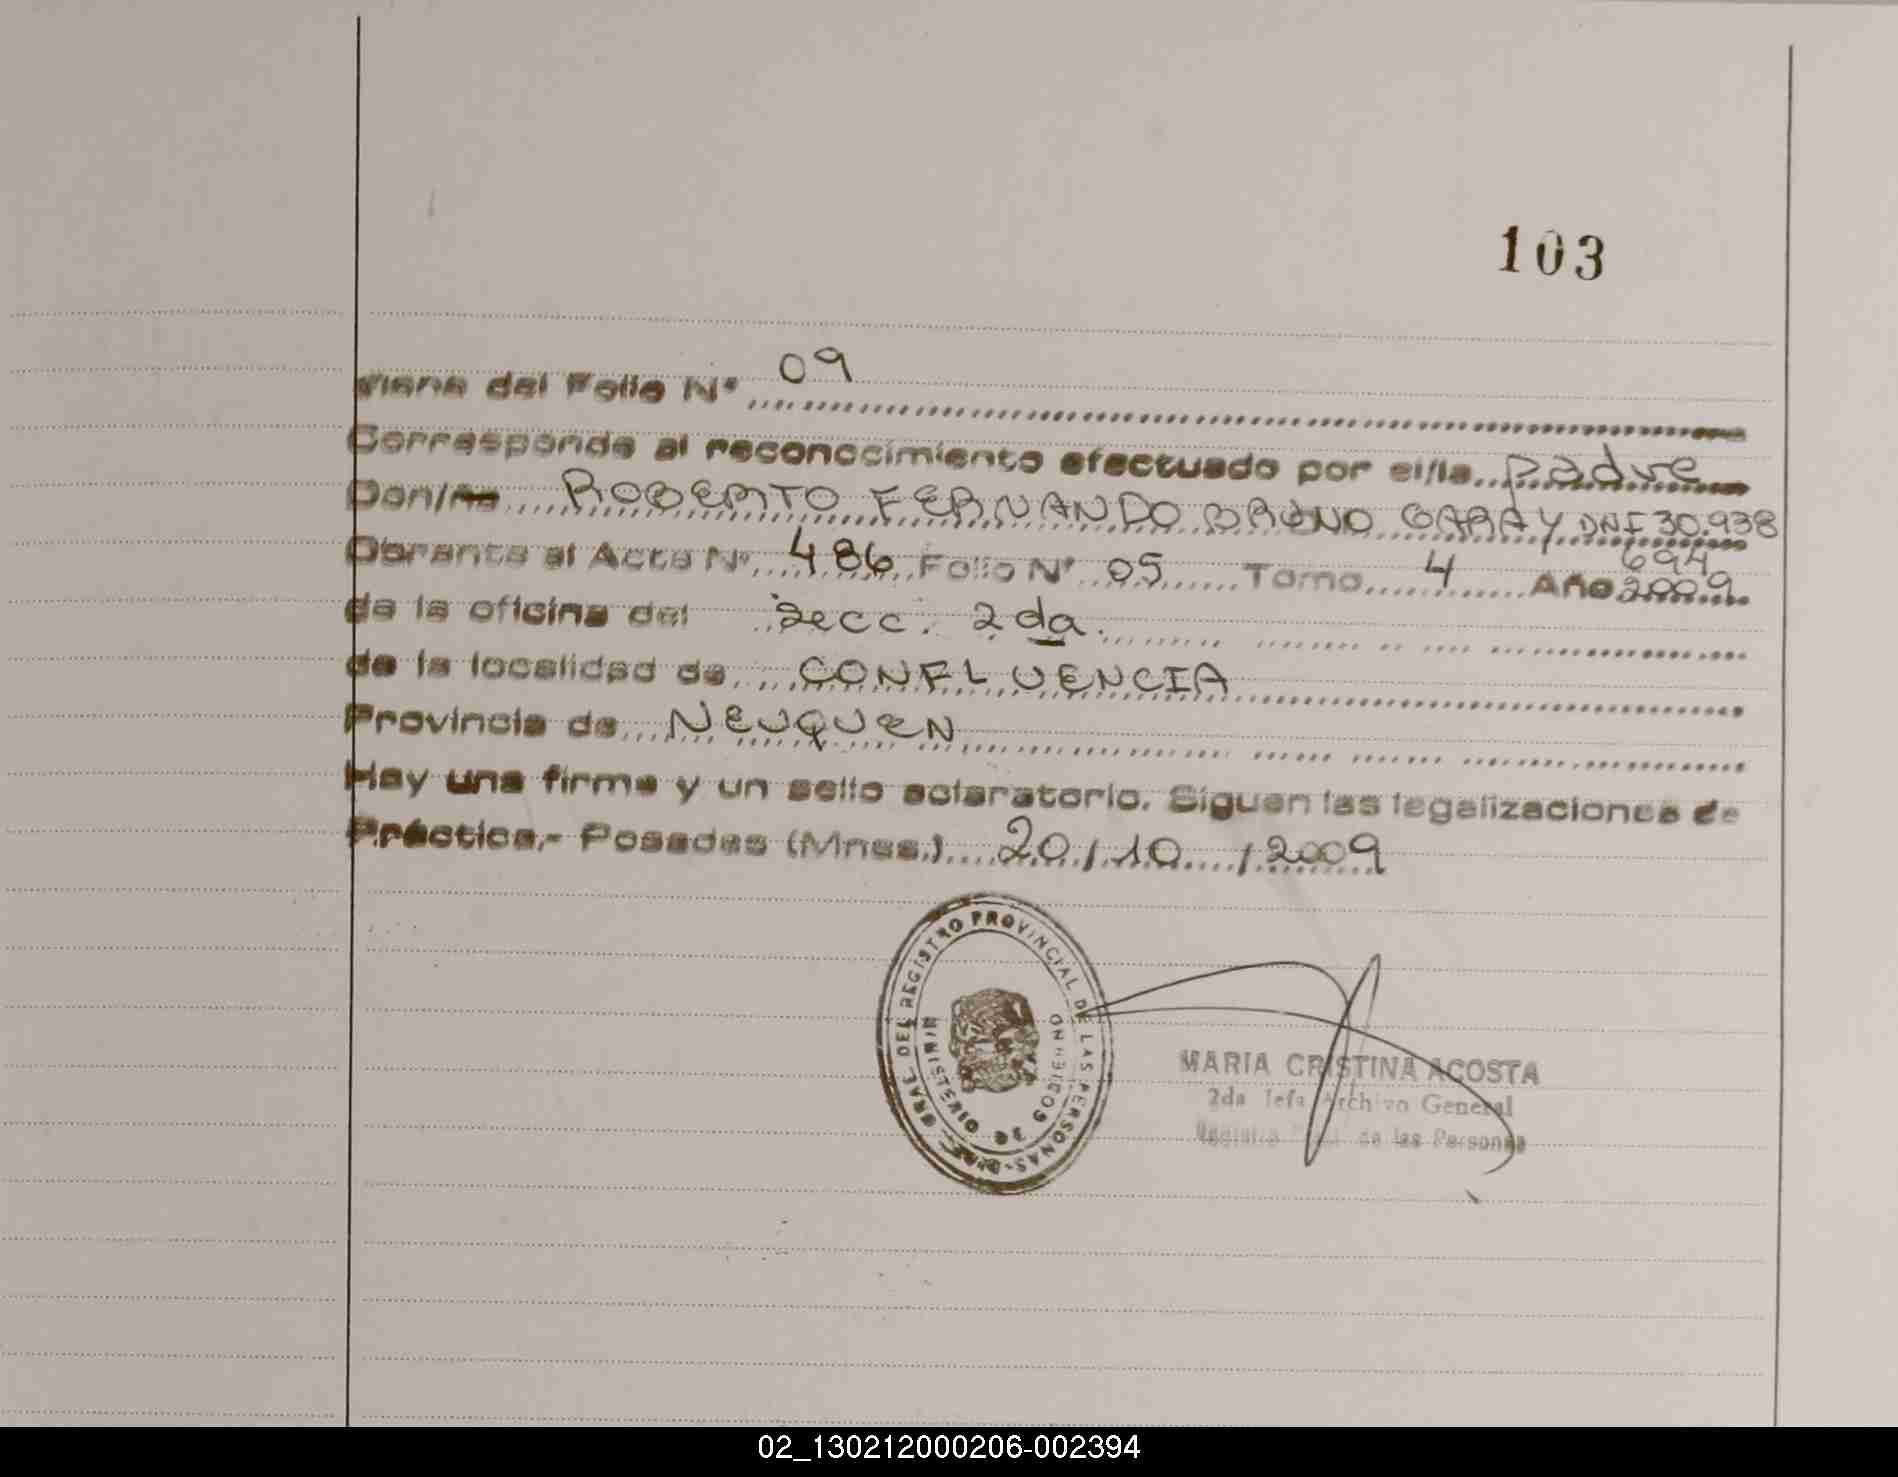 103
Viene del Folio Nº 09
Corresponde al reconocimiento efectuado por el/la padre
Don/ña ROBERTO FERNANDO BRUNO GARAY DNI 30.938
694
Obrante al Acta Nº 486 Folio Nº 05 Tomo 4 Año 2009
de la oficina del Secc. 2da.
de la localidad de CONFLUENCIA
Provincia de NEUQUEN
Hay una firma y un sello aclaratorio. Siguen las legalizaciones de
Práctica.- Posadas (Mnes.) 20/10/2009
GRAL. DEL REGISTRO PROVINCIAL DE LAS PERSONAS
MINISTERIO DE GOBIERNO
MARIA CRISTINA ACOSTA
2da Jefa Archivo General
Registro de las Personas
02_130212000206-002394